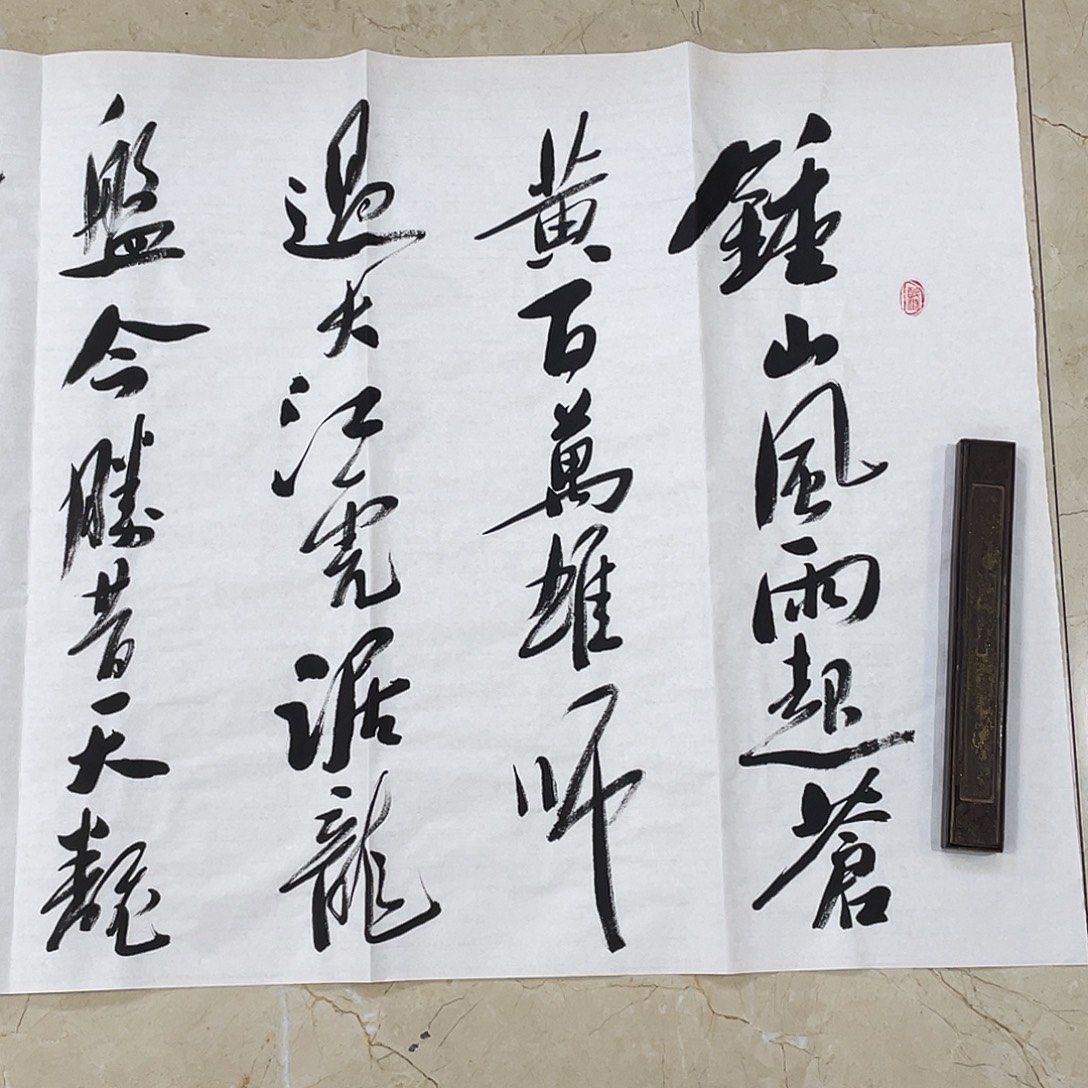 鍾山風雨起蒼
黄百萬雄師
過大江虎踞龍
盤今勝昔天